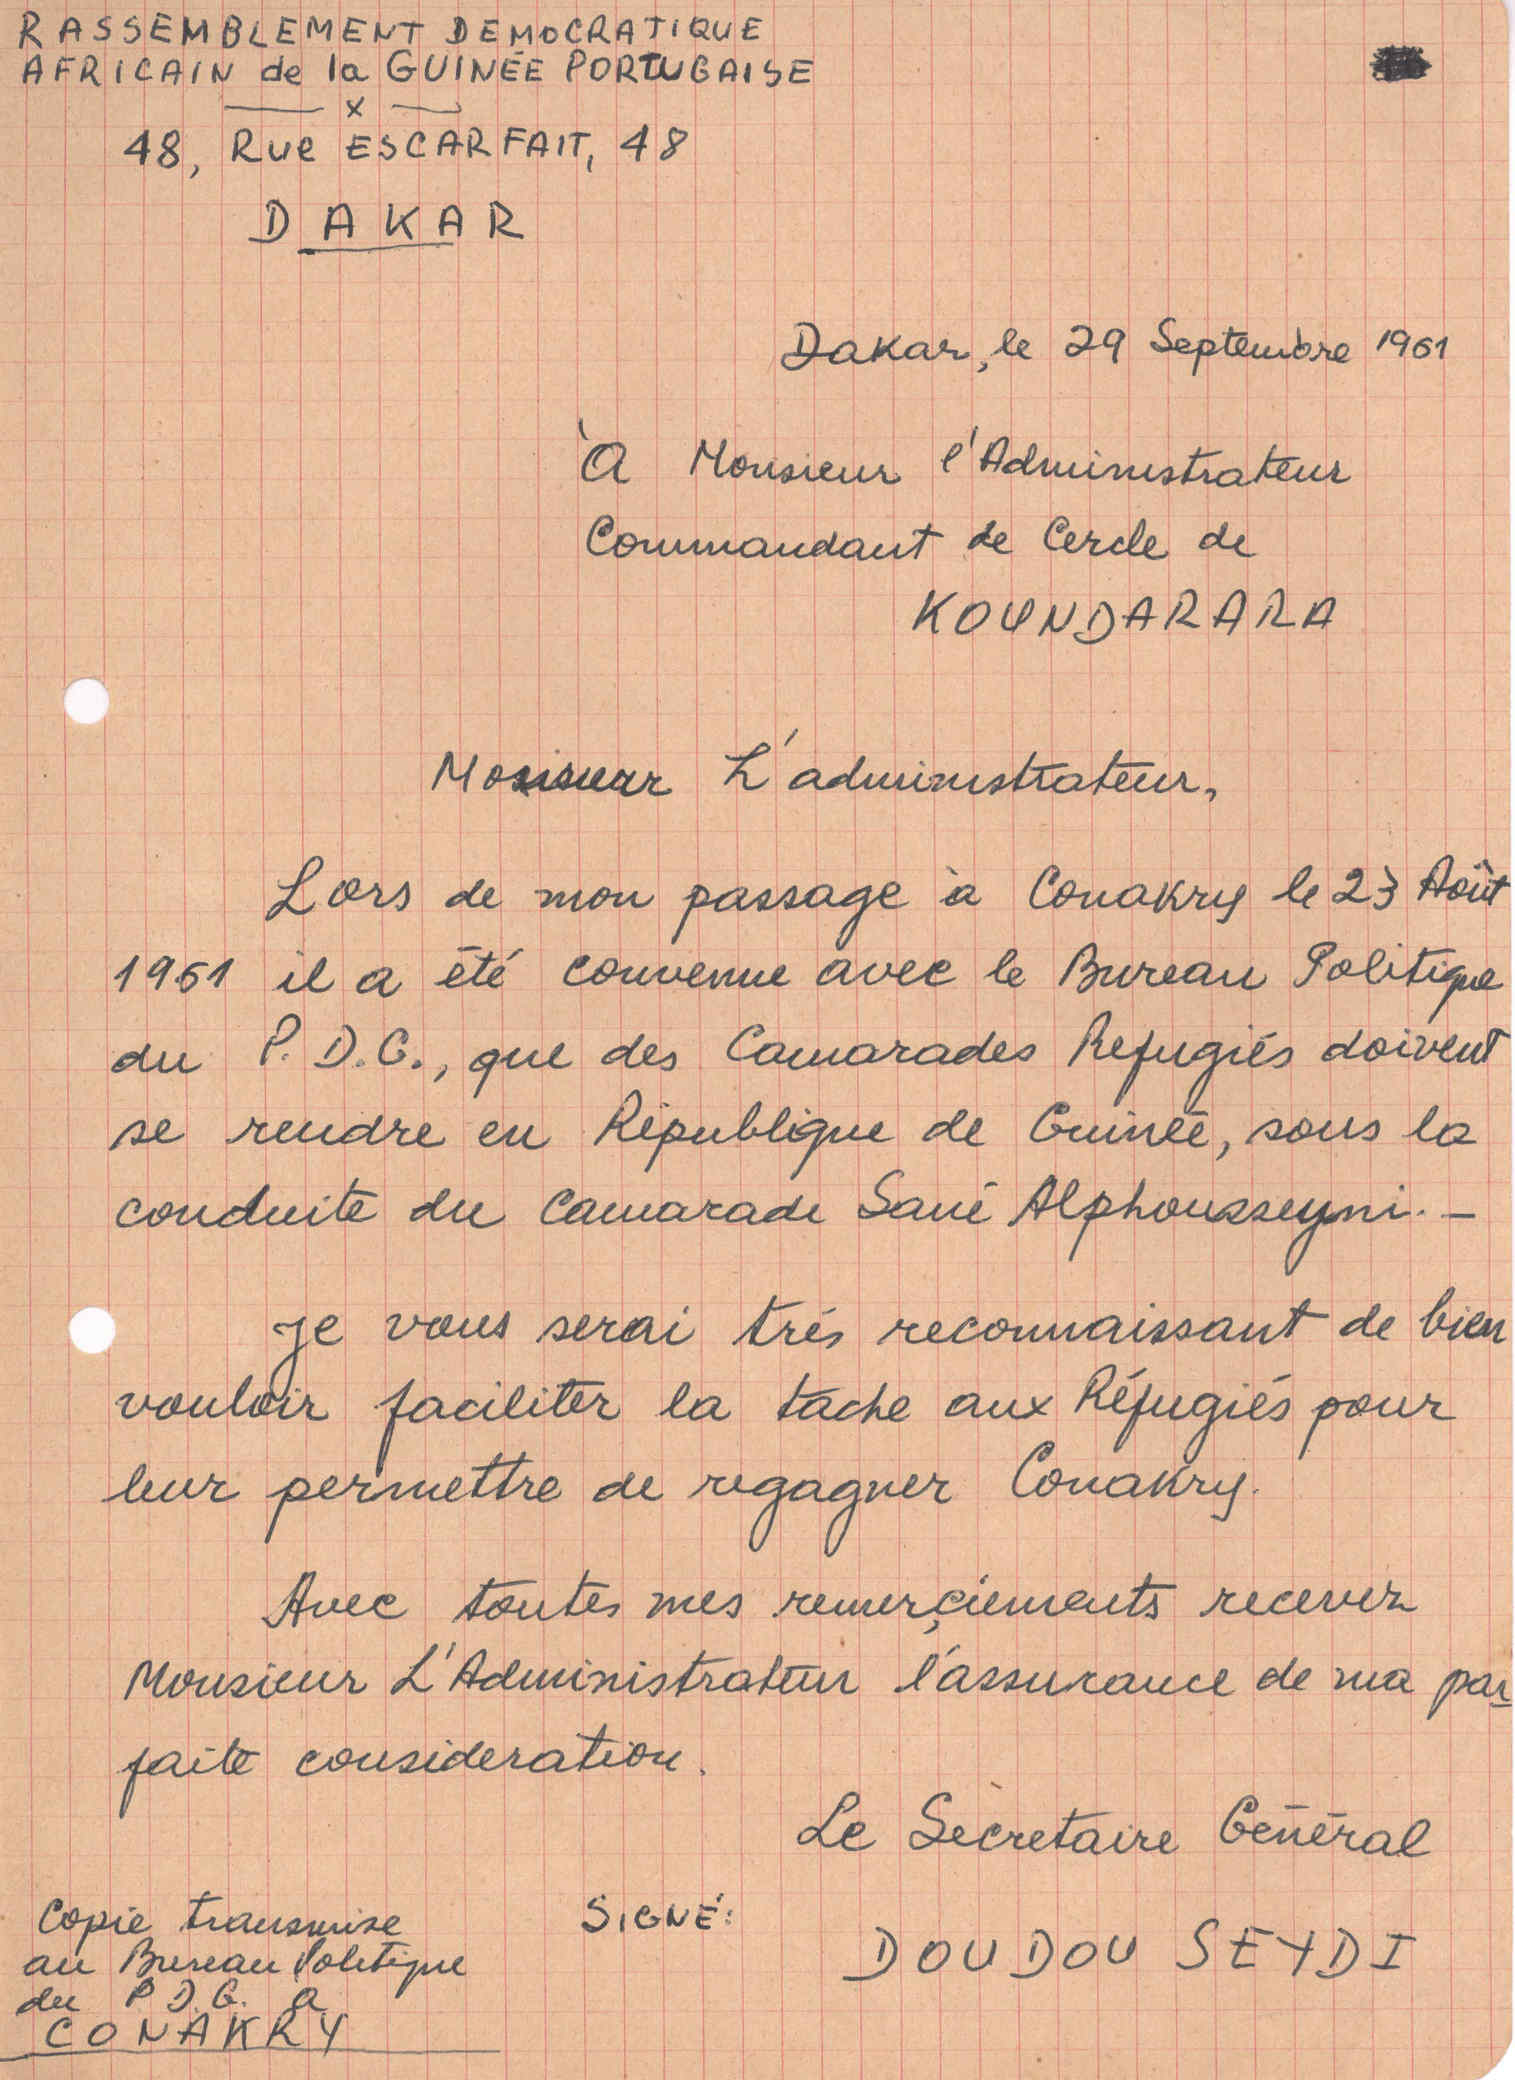 RASSEMBLEMENT DÉMOCRATIQUE
AFRICAIN de la GUINÉE PORTUGAISE
x
48, Rue ESCARFAIT, 48
DAKAR
Dakar, le 29 Septembre 1961
À Monsieur l'Administrateur
Commandant de Cercle de
KOUNDARARA
Monsieur L'administrateur,
Lors de mon passage à Conakry le 23 Août
1961 il a été convenue avec le Bureau Politique
du P. D. G., que des Camarades Refugiés doivent
se rendre en République de Guinée, sous la
conduite du Camarade Sané Alphousseyni. -
Je vous serai trés reconnaissant de bien
vouloir faciliter la tache aux Réfugiés pour
leur permettre de regagner Conakry.
Avec toutes mes remerçiements recevez
Monsieur L'Administrateur l'assurance de ma par-
faite consideration.
Le Sècretaire Général
SIGNÉ:
DOUDOU SEYDI
Copie transmise
au Bureau Politique
du P D. G. a
CONAKRY